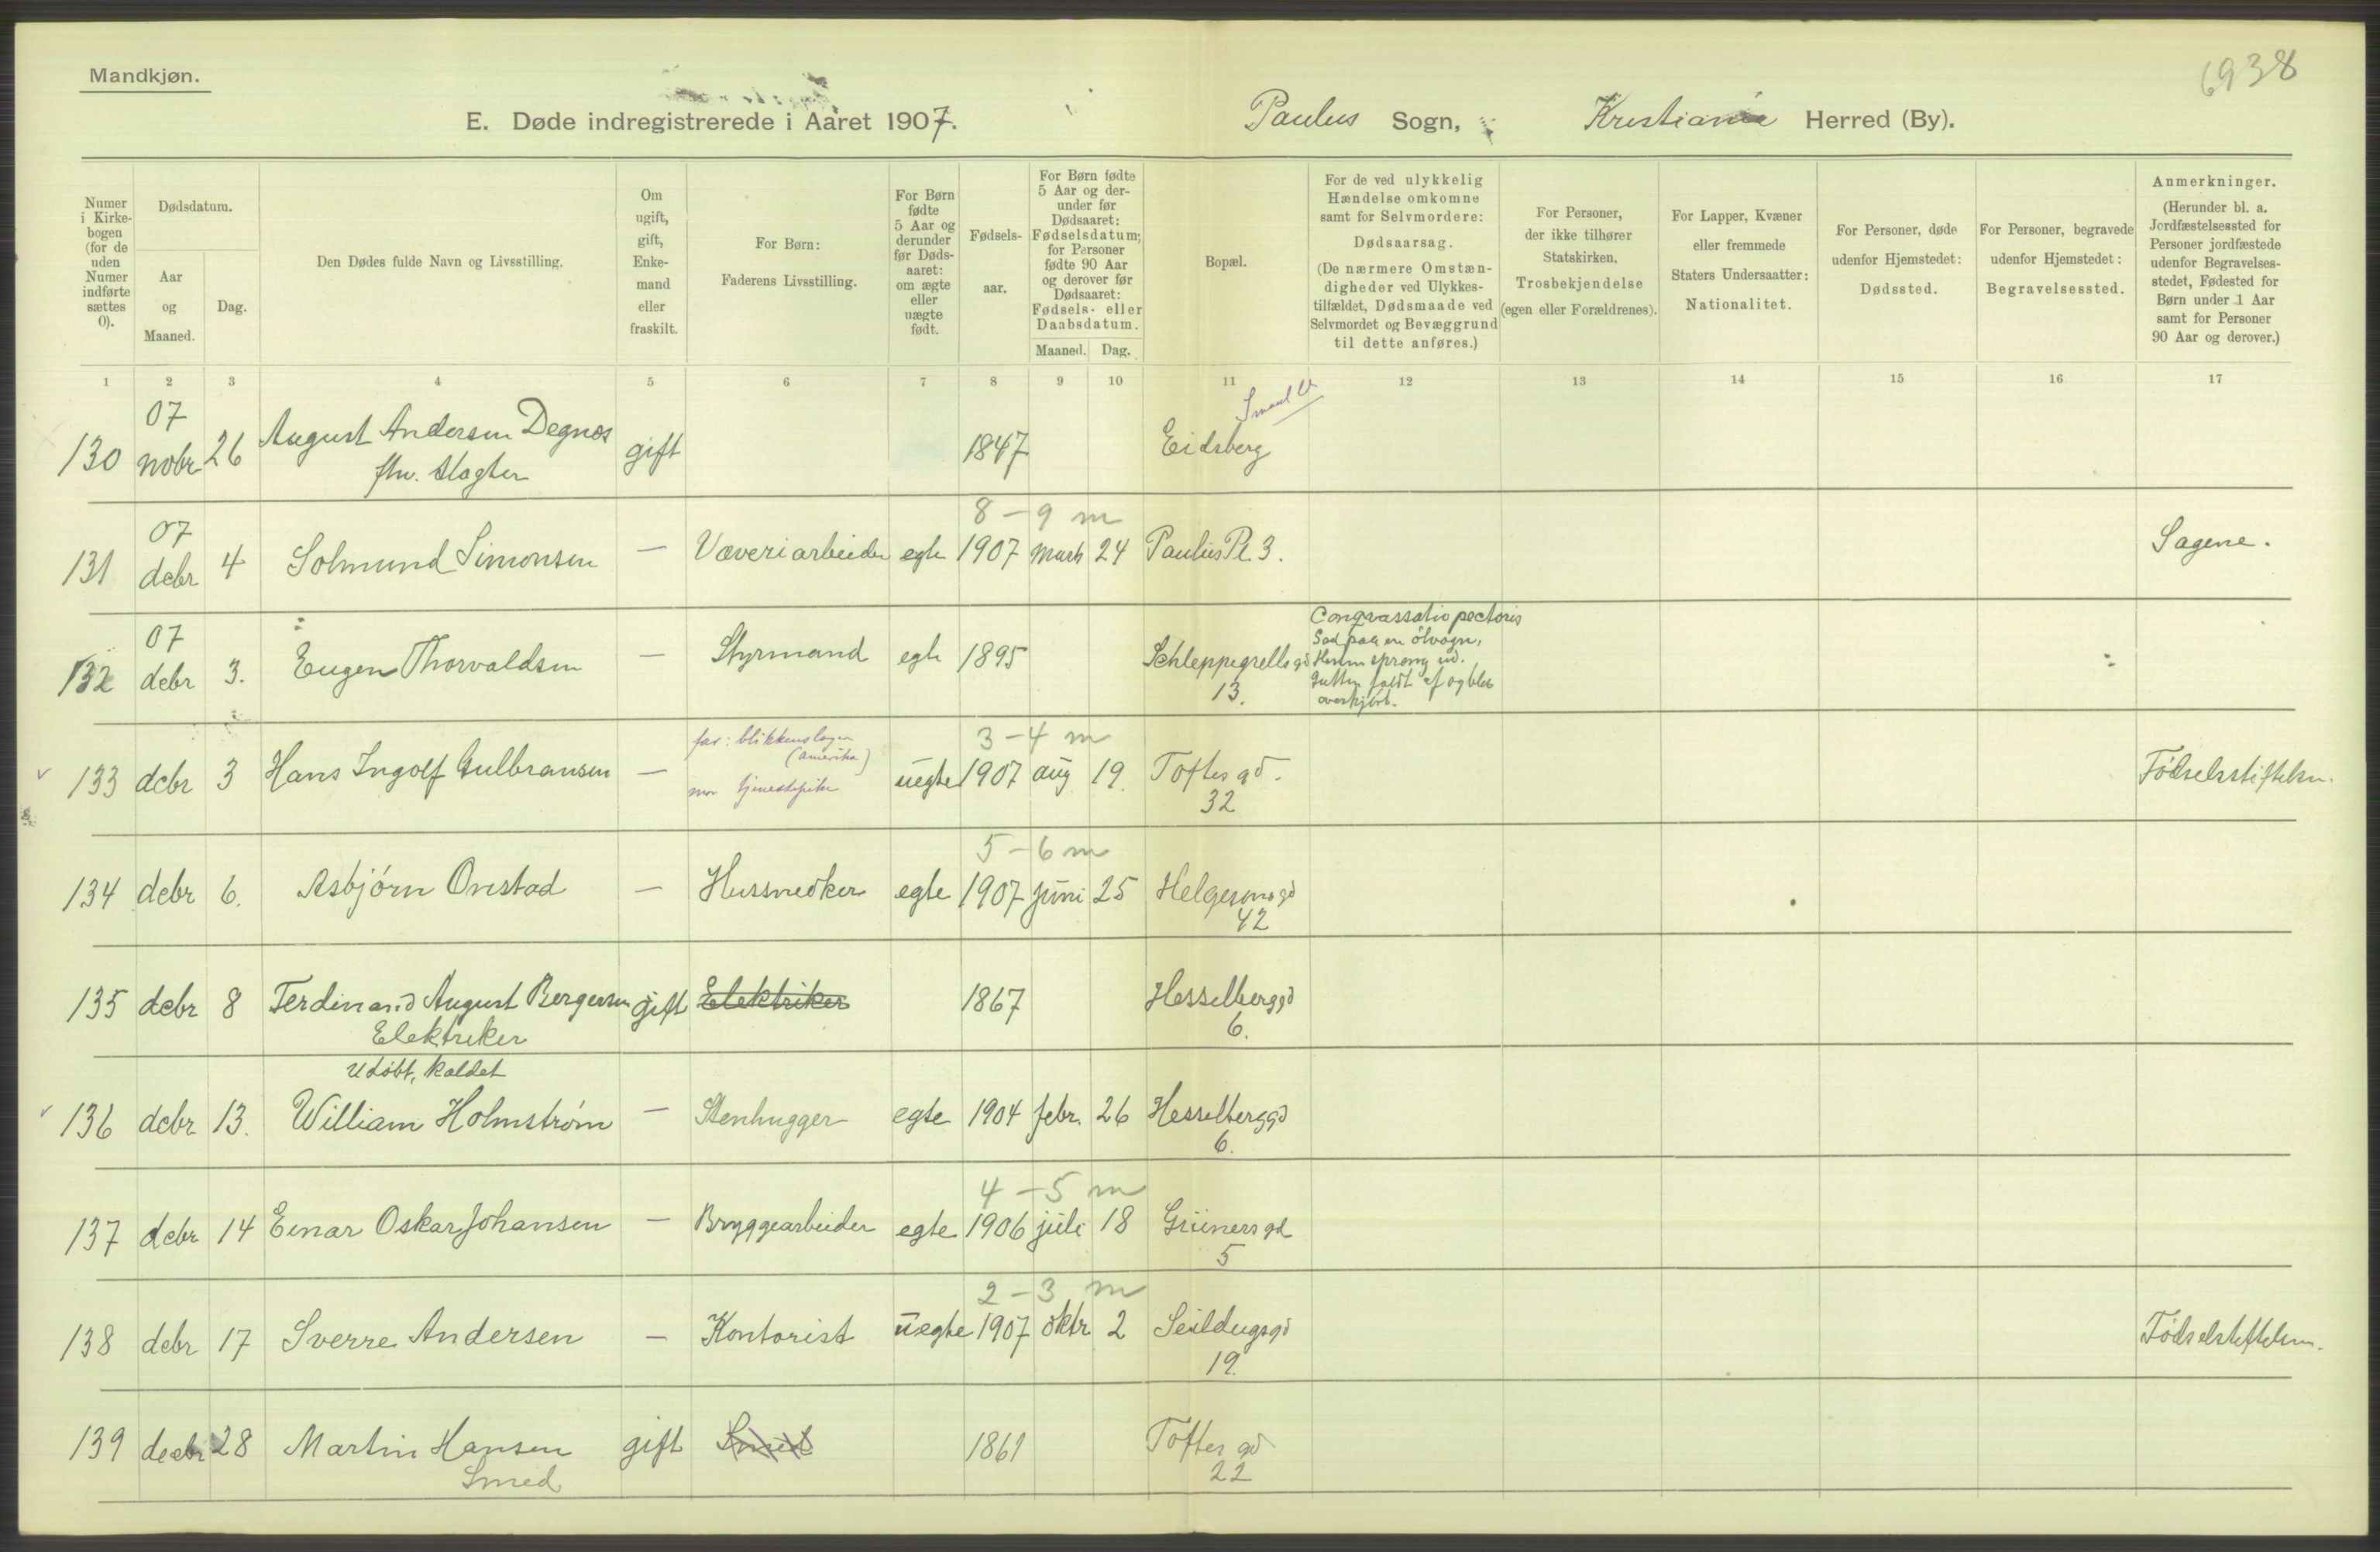 Mandkjøn.
6938
E. Døde indregistrerede i Aaret 1907.
Paulus Sogn, Kristiania Herred (By).
Numer i Kirkebogen (for de uden Numer indførte sættes 0).
Dødsdatum.
Aar og Maaned.
Dag.
Den Dødes fulde Navn og Livsstilling.
Om ugift, gift, Enkemand eller fraskilt.
For Børn:
Faderens Livsstilling.
For Børn fødte 5 Aar og derunder før Dødsaaret: om ægte eller uægte født.
Fødselsaar.
For Børn fødte 5 Aar og derunder før Dødsaaret: Fødselsdatum; for Personer fødte 90 Aar og derover før Dødsaaret: Fødsels- eller Daabsdatum.
Maaned. Dag.
Bopæl.
For de ved ulykkelig Hændelse omkomne samt for Selvmordere:
Dødsaarsag.
(De nærmere Omstændigheder ved Ulykkestilfældet, Dødsmaade ved Selvmordet og Bevæggrund til dette anføres.)
For Personer, der ikke tilhører Statskirken,
Trosbekjendelse
(egen eller Forældrenes).
For Lapper, Kvæner eller fremmede Staters Undersaatter:
Nationalitet.
For Personer, døde udenfor Hjemstedet:
Dødssted.
For Personer, begravede udenfor Hjemstedet:
Begravelsessted.
Anmerkninger.
(Herunder bl. a. Jordfæstelsessted for Personer jordfæstede udenfor Begravelsesstedet, Fødested for Børn under 1 Aar samt for Personer 90 Aar og derover.)
1 2 3 4 5 6 7 8 9 10 11 12 13 14 15 16 17
07
130 nobr 26 August Andersen Degnæs gift 1847 Eidsberg
fhv. Slagter
8 - 9 m
07
131 debr 4 Solmund Simonsen — Væveriarbeider egte 1907 Marts 24 Paulus Pl. 3. Sagene.
07
132 debr 3. Eugen Thorvaldsen — Styrmand egte 1895 Schleppegrells gd
13.
Congvassatio pectoris
Sad paa en ölvogn,
Hesten sprang ud.
Gutten faldt af og blev
overkjørt.
far: blikkenslager
(Amerika)
3 - 4 m
133 debr 3 Hans Ingolf Gulbransen — uegte 1907 aug 19. Toftes gd. Födselsstiftelsen.
mor tjenestepike
32
5 - 6 m
134 debr 6. Asbjörn Onstad — Hussnedker egte 1907 juni 25 Helgesens gd
42
135 debr 8 Ferdinand August Bergersen gift Elektriker 1867 Hesselberggd
Elektriker 6.
Udöbt, kaldet
136 debr 13. William Holmström — Stenhugger egte 1904 febr. 26 Hesselberggd
6.
4 - 5 m
137 debr 14 Einar Oskar Johansen — Bryggearbeider egte 1906 juli 18 Grüners gd
5
2 - 3 m
138 debr 17 Sverre Andersen — Kontorist uegte 1907 oktr 2 Seildugsgd Födselstiftelsen.
19.
139 debr 28 Martin Hansen gift Smed 1861 Toftes gd
Smed 22